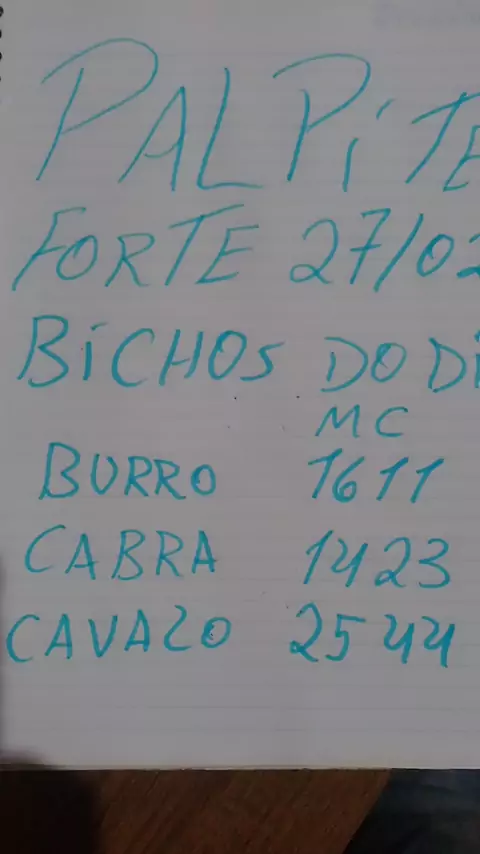 PALPITE
FORTE 27/02
BICHOS DO DI
MC
BURRO 1611
CABRA 1423
CAVALO 2544